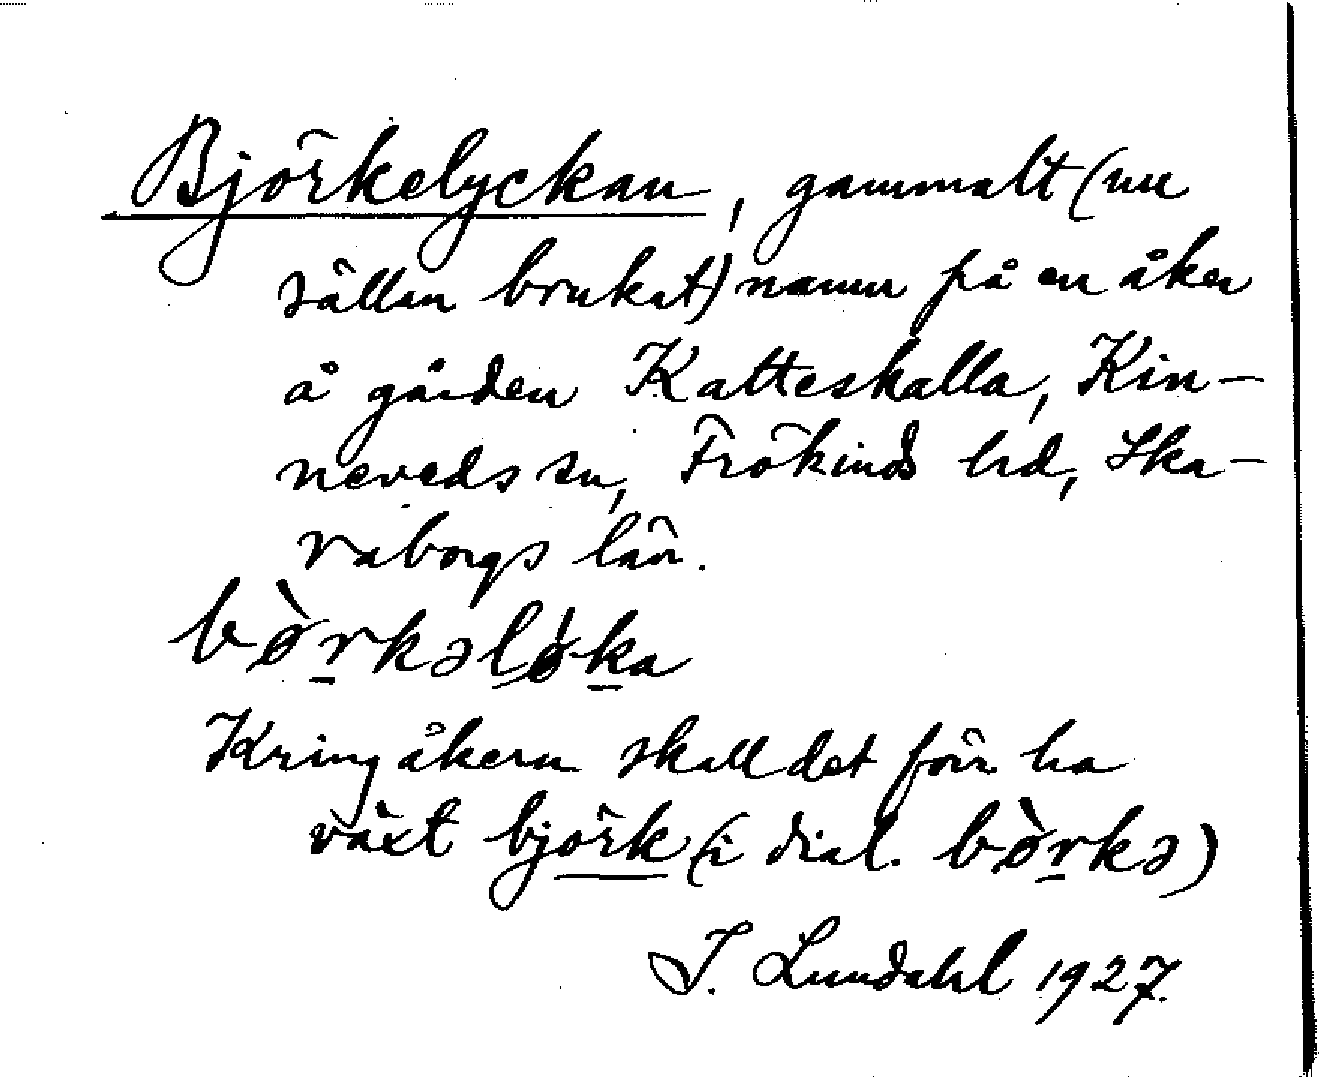 Björkelyckan, gammalt (nu
sällan brukat) namn på en åker
å gården Katteskalla, Kin-
neveds sn, Frökinds hd, Ska-
raborgs län.
bø̀rkəlø̀ka
Kring åkern skall det förr ha
växt björk (i dial. bø̀rkə)
I. Lundahl 1927.